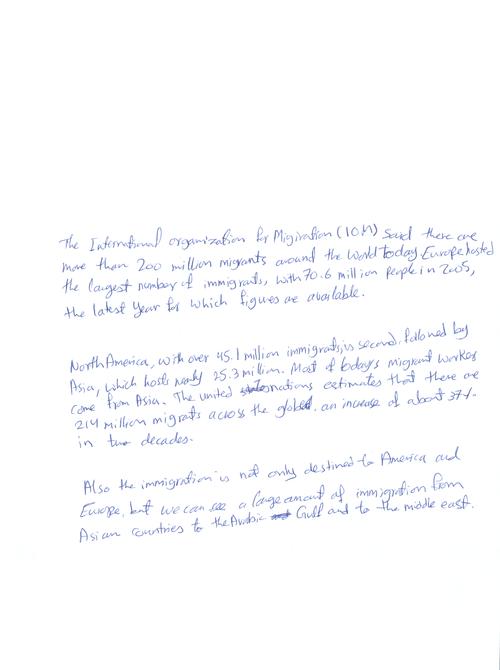 The International organization for Migiration (IOM) said there are
more than 200 million migrants around the world today Europe hosted
the largest number of immigrants, with 70.6 million people in 2005,
the latest year for which figures are available.
North America, with over 45.1 million immigrants, is second, followed by
Asia, which hosts nearly 25.3 million. Most of today's migrant workes
come from Asia. The united nations estimates that there are
214 million migrants across the globe, an increase of about 37%
in two decades.
Also the immigration is not only destined to America and
Europe, but we can see a large amount of immigration from
Asian countries to the Arabic Gulf and to the middle east.